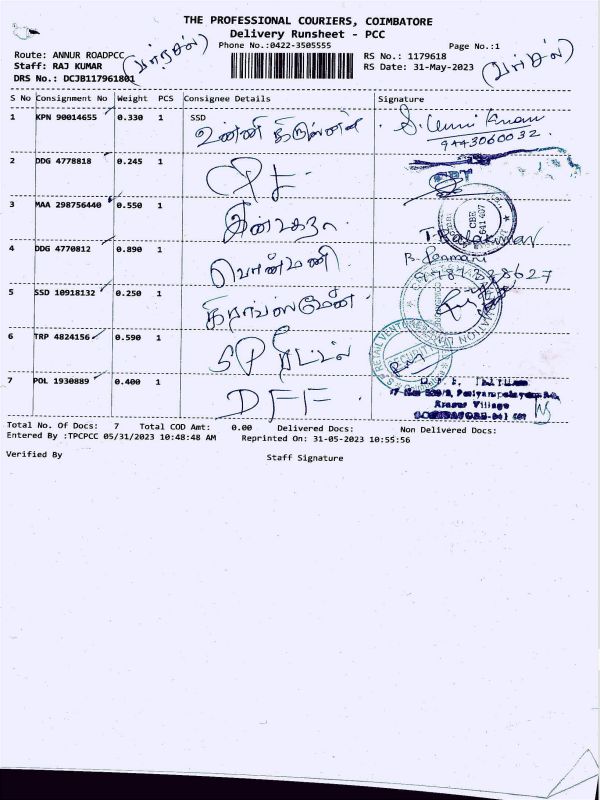 THE PROFESSIONAL COURIERS, COIMBATORE
Delivery Runsheet - PCC
Phone No.:0422-3505555
Page No.:1
Route: ANNUR ROADPCC
RS No.: 1179618
Staff: RAJ KUMAR
RS Date: 31-May-2023
DRS No.: DCJB117961801
(பார்சல்)
(பார்சல்)
S No Consignment No Weight PCS Consignee Details Signature
1 KPN 90014655 0.330 1 SSD
உண்ணி கிருஷ்ணன்
9443060032.
2 DDG 4778818 0.245 1
3 MAA 298756440 0.550 1
CBE
641 407
T. Balakumar
4 DDG 4770812 0.890 1 பொன்மணி
B. Ponmani
5 SSD 10918132 0.250 1
6 TRP 4824156 0.590 1 SP
SECURITY
7 POL 1930889 0.400 1 DFF
Arasur Village
COIMBATORE-641 407
Total No. Of Docs: 7 Total COD Amt: 0.00 Delivered Docs: Non Delivered Docs:
Entered By :TPCPCC 05/31/2023 10:48:48 AM Reprinted On: 31-05-2023 10:55:56
Verified By
Staff Signature